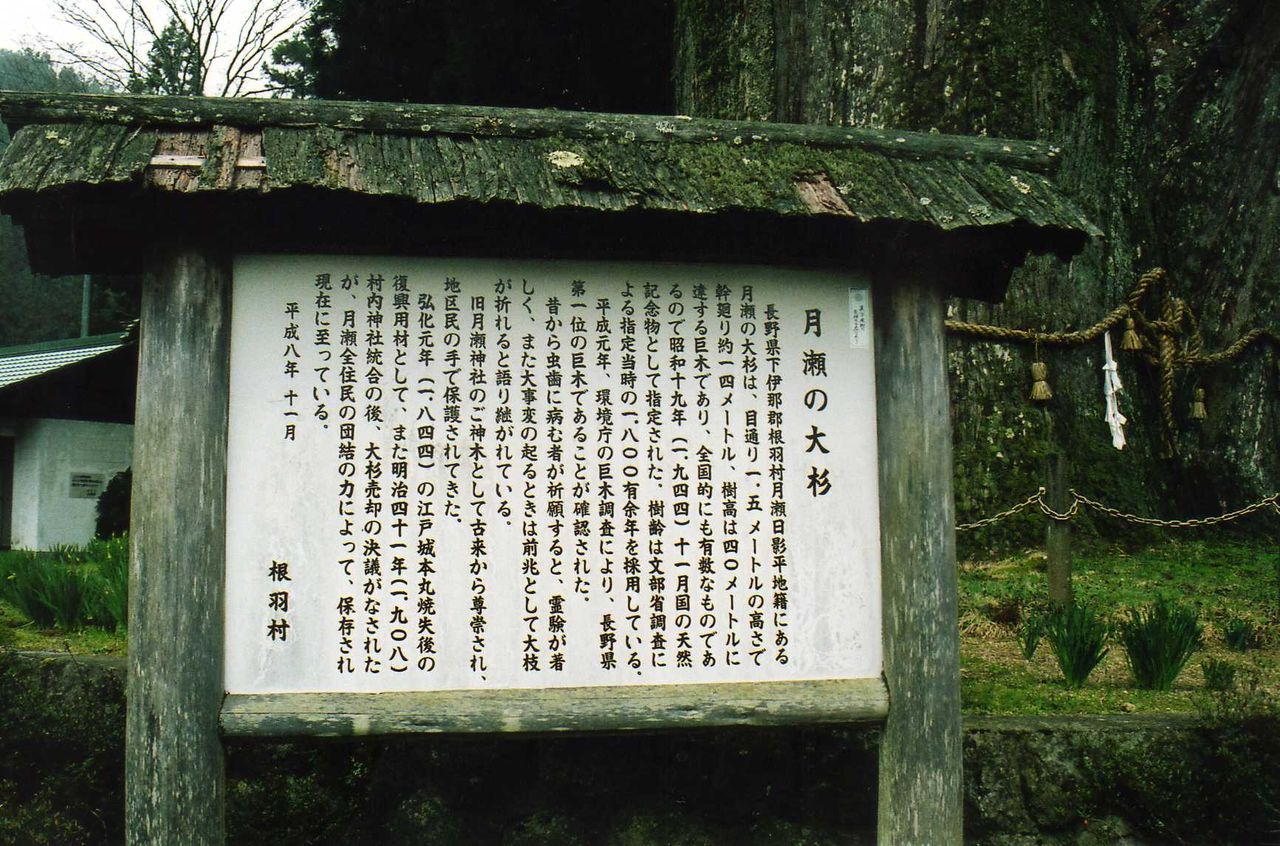 月瀬の大杉
長野県下伊那郡根羽村月瀬日影平地籍にある
月瀬の大杉は、目通り一.五メートルの高さで
幹廻り約一四メートル、樹高は四〇メートルに
達する巨木であり、全国的にも有数なものであ
るので昭和十九年(一、九四四)十一月国の天然
記念物として指定された。樹齢は文部省調査に
よる指定当時の一、八〇〇有余年を採用している。
平成元年、環境庁の巨木調査により、長野県
第一位の巨木であることが確認された。
昔から虫歯に病む者が祈願すると、霊験が著
しく、また大事変の起るときは前兆として大枝
が折れると語り継がれている。
旧月瀬神社のご神木として古来から尊崇され、
地区民の手で保護されてきた。
弘化元年(一、八四四)の江戸城本丸焼失後の
復興用材として、また明治四十一年(一、九〇八)
村内神社統合の後、大杉売却の決議がなされた
が、月瀬全住民の団結の力によって、保存され
現在に至っている。
平成八年 十一月
根羽村